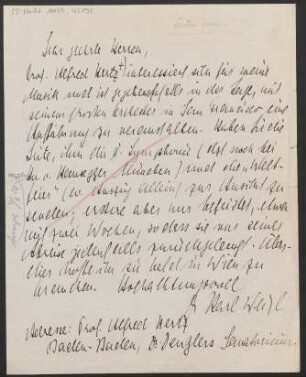 Sehr geehrte Herren,
Prof. Alfred Hertz interessiert sich für meine
Musik und ist gegebenenfalls in der Lage, mit
seinem großen Orchester in San Francisco eine
Aufführung zu veranstalten. Haben Sie die
Güte, ihm die Symphonie (ist noch bei
Hr. v. Hausegger München) und die
zur Ansicht zu
senden; erstere aber nur befristet, etwa
auf zwei Wochen, sodass sie
jedenfalls zurückgelangt.
hoffe ich sie bald in Wien zu
sprechen. Hochachtungsvoll
Dr Karl Weigl
Adresse: Prof. Alfred Hertz
Baden-Baden, Dr Denglers Sanatorium.